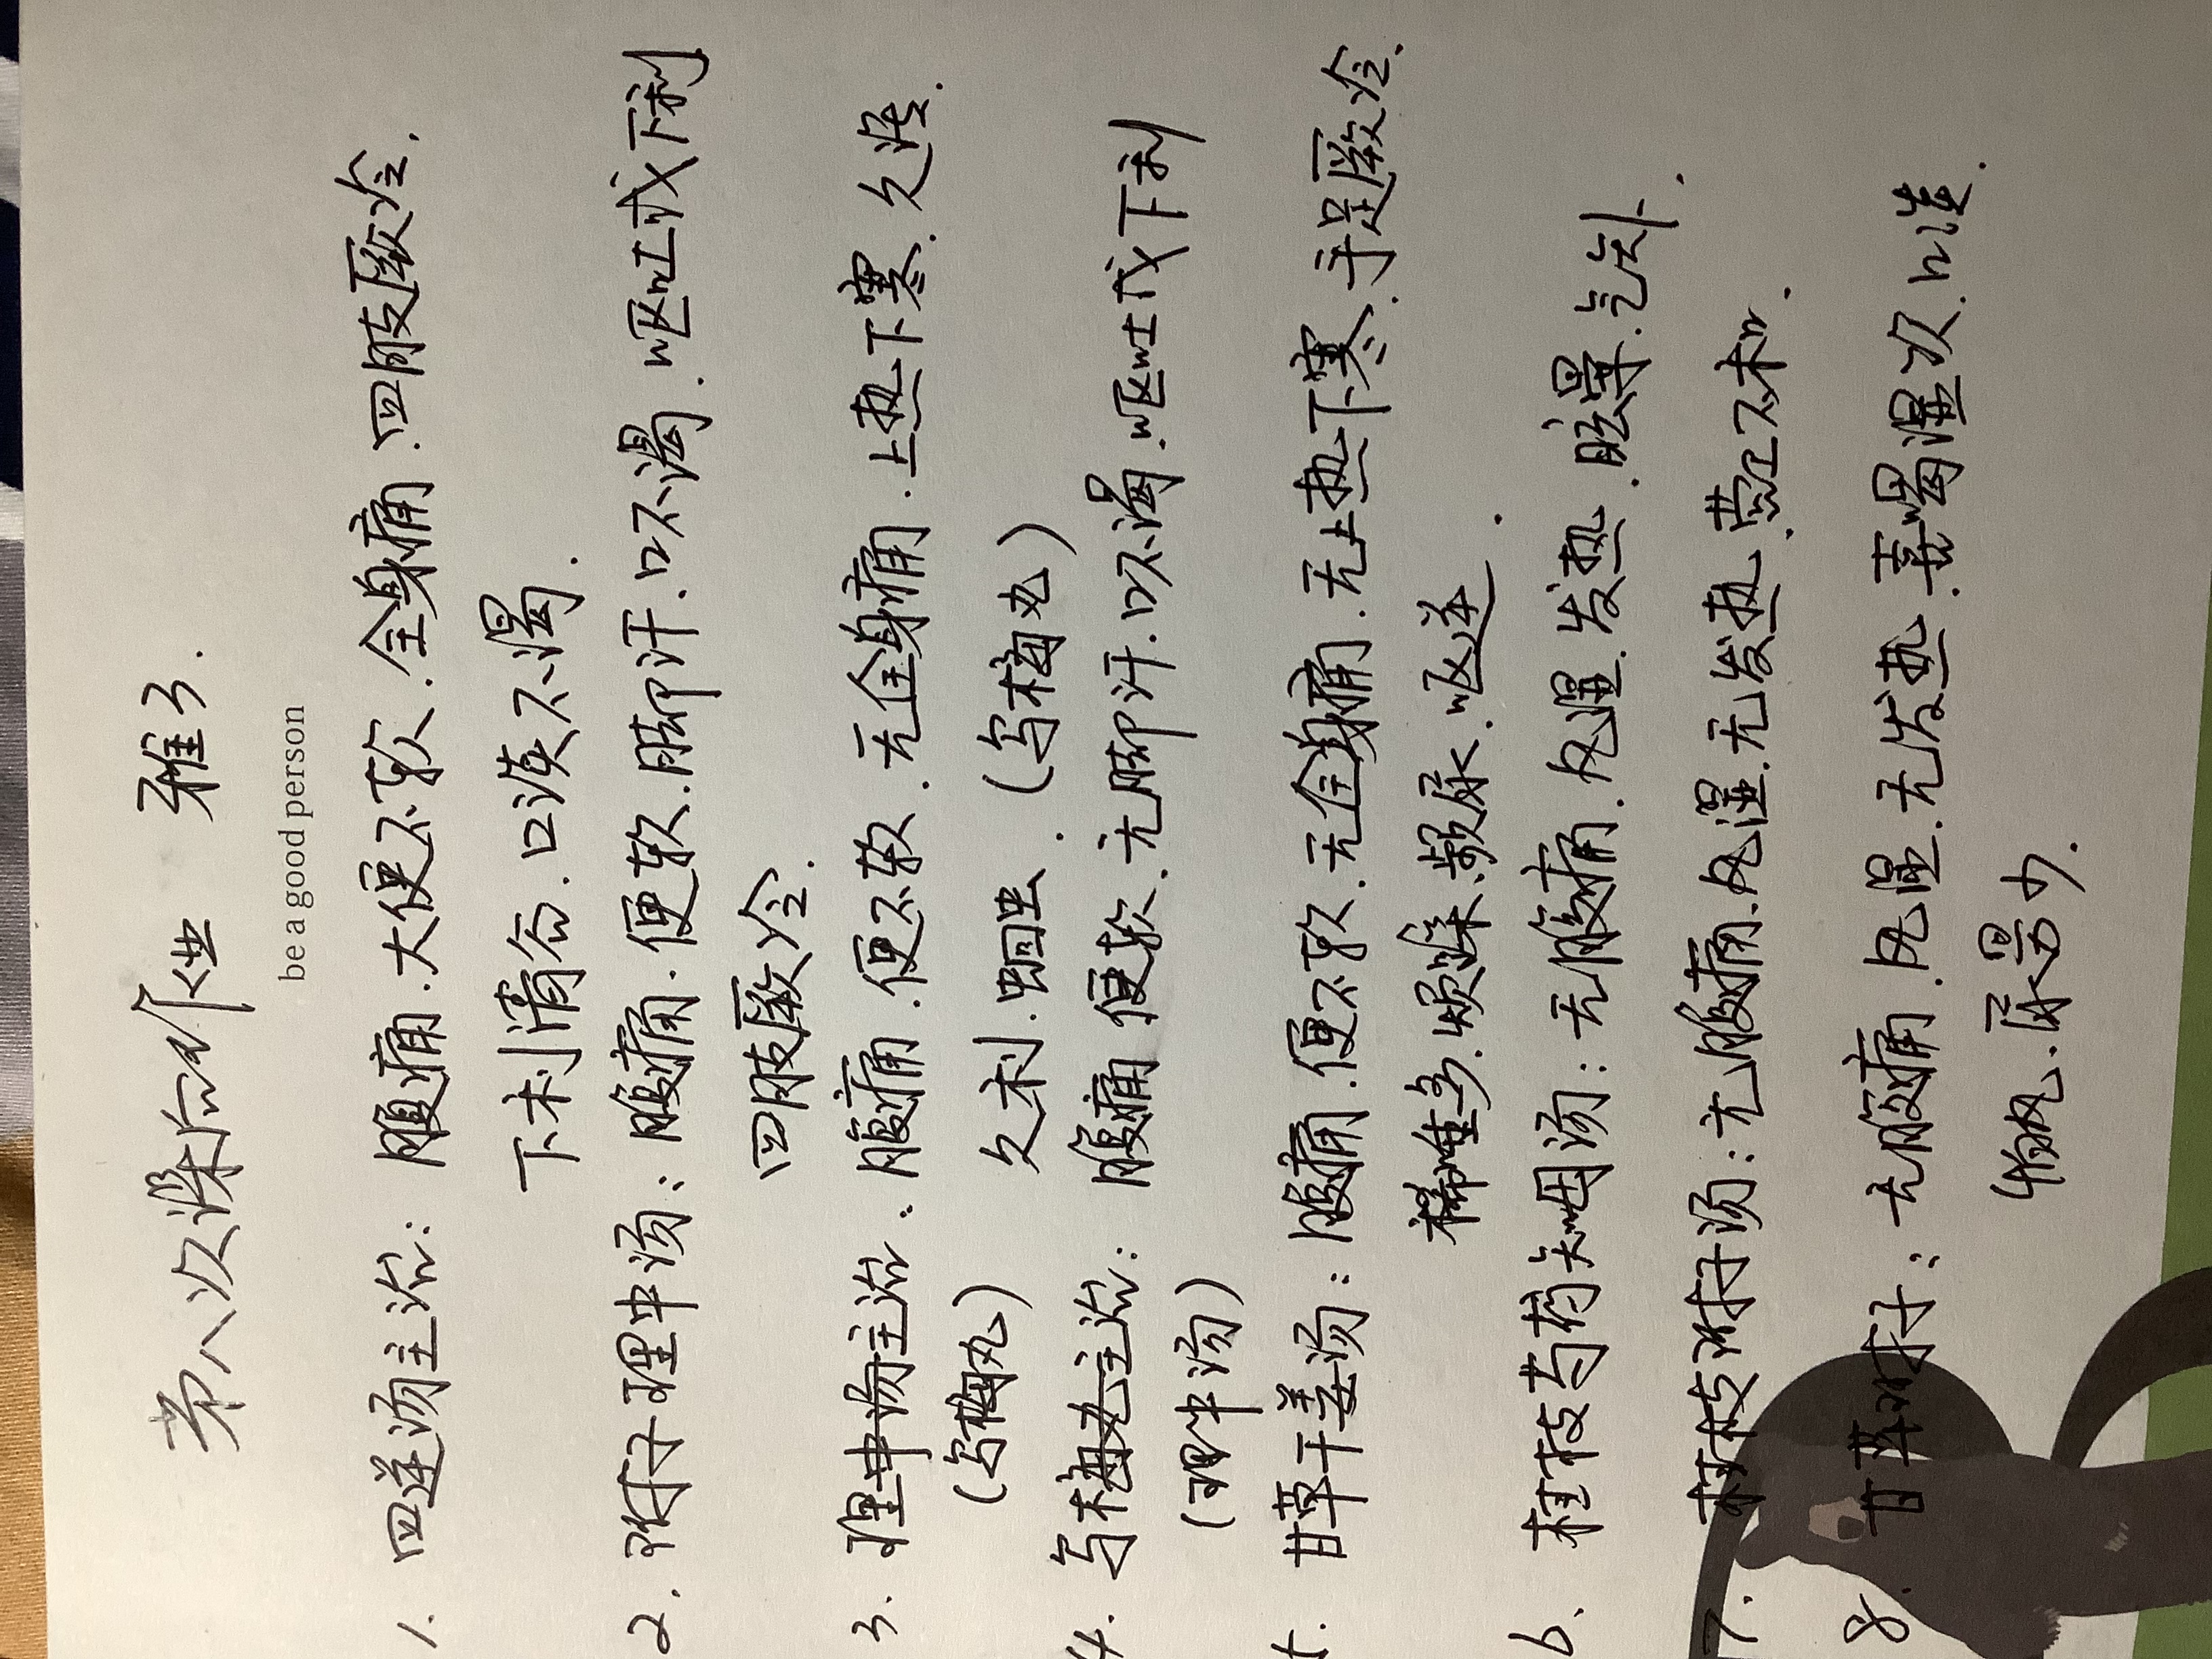 第八次课后作业 雅3.
be a good person
1. 四逆汤主治: 腹痛.大便不软.全身痛.四肢厥冷.
下利清谷.口淡不渴.
2. 附子理中汤: 腹痛.便软.脚汗.口不渴.呕吐或下利
四肢厥冷.
3. 理中汤主治. 腹痛.便不软.无全身痛.上热下寒.久痊.
(乌梅丸) 久利.蛔虫. (乌梅丸)
4. 乌梅丸主治: 腹痛 便软.无脚汗.口不渴.呕吐或下利
(理中汤)
5. 甘草干姜汤: 腹痛.便不软.无全身痛.无上热下寒.手足厥冷.
稀唾多.烦躁.频尿.呕逆.
6. 桂枝芍药知母汤: 无腹痛.风湿.发热.眩晕.气短.
7. 桂枝附子汤: 无腹痛.风湿.无发热.营卫不和.
8. 甘草附子: 无腹痛.风湿.无发热.喜喝温饮.
怕风.尿量少.